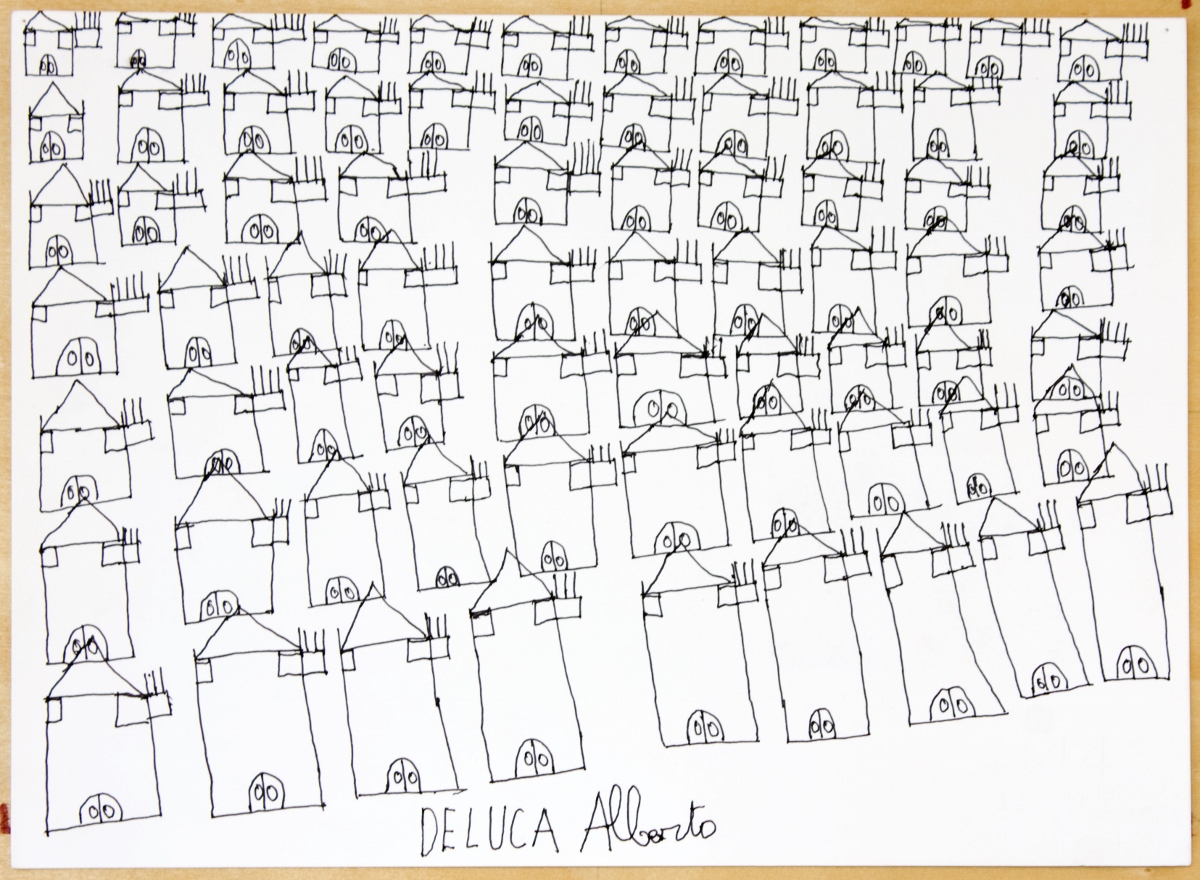 DELUCA Alberto